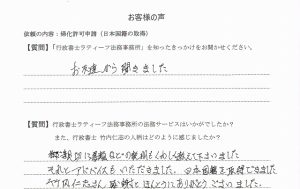 お客様の声
依頼の内容：帰化許可申請（日本国籍の取得）
【質問】「行政書士ラティーフ法務事務所」を知ったきっかけをお聞かせください。
お友達から聞きました
【質問】行政書士ラティーフ法務事務所の法務サービスはいかがでしたか？
また、行政書士 竹内仁志の人柄はどのように感じましたか？
くわしく教えてもらいました
それとアドバイスもいただきました。日本国籍を取得できました
竹内仁志さん 感謝と ほんとうにありがとうございました。